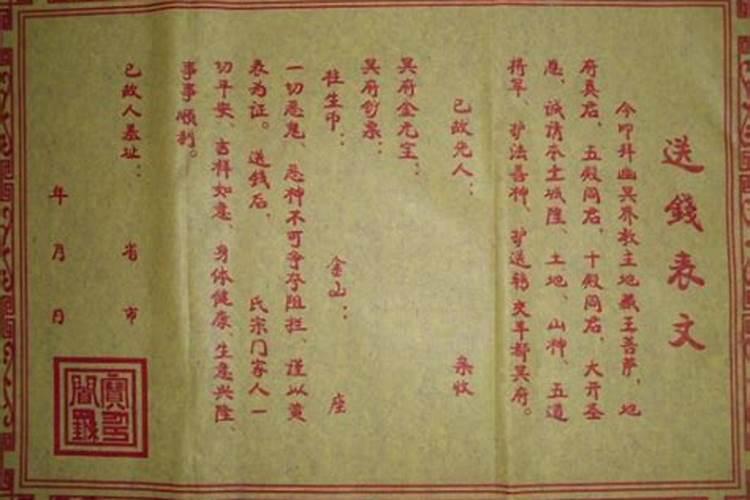 送錢表文
今叩拜幽冥界教主地藏王菩萨,地
府真君,五殿阎君,十殿阎君,大开圣
恩,诚请本土城隍、土地、山神、五道
将军、护法善神,护送转交丰都冥府。
已故先人: 亲收
冥府金元宝:
冥府钞票:
往生币: 金山: 座
一切恶鬼、恶神不可争夺阻拦,谨以黄
表为证。送钱后, 氏宗门家人一
切平安、吉祥如意、身体健康、生意兴隆、
事事顺利。
已故人墓址: 省 市
年 月 日